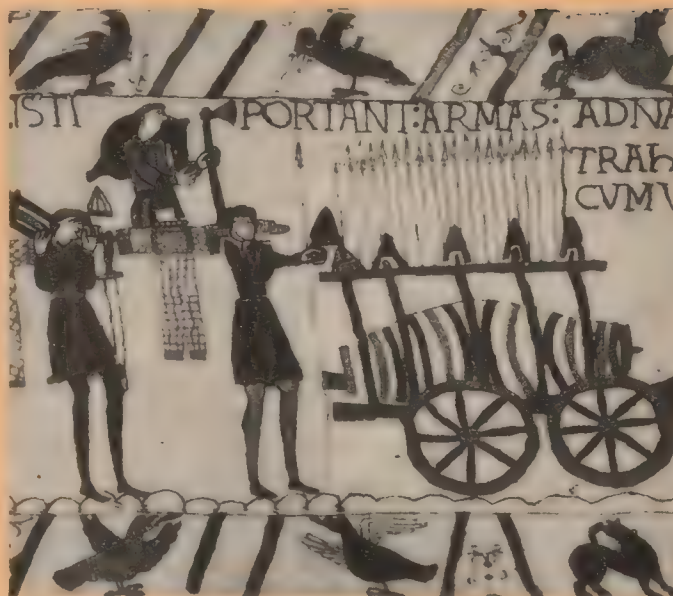 ISTI PORTANT:ARMAS: ADNA
TRAh
CVMV